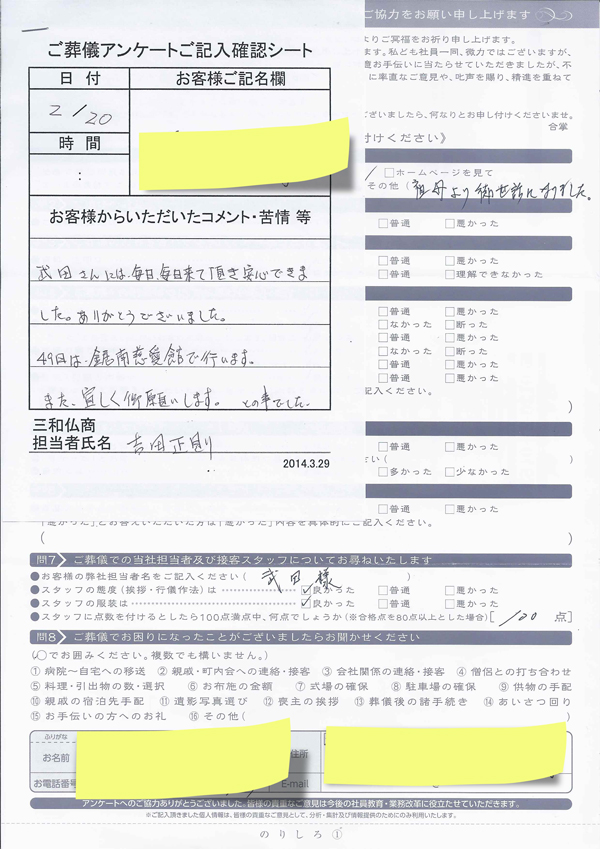 ご協力をお願い申し上げます
ご葬儀アンケートご記入確認シート
日付
お客様ご記名欄
2/20
時間
:
お客様からいただいたコメント・苦情 等
武田さんには、毎日、毎日来て頂き安心できま
した。ありがとうございました。
49日は、錦南慈愛館で行います。
また、宜しく御願いします。 との事でした。
三和仏商
担当者氏名 吉田正則
2014.3.29
よりご冥福をお祈り申し上げ
ます。私ども社員一同、微力ではございますが、
お手伝いに当たらせていただきましたが、不
に率直なご意見や、叱声を賜り、精進を重ねて
ございましたら、何なりとお申し付けくださいませ。
合掌
付けください》
□ホームページを見て
その他( 祖母より御世話になりました。
□普通 □悪かった
□普通 □悪かった
□普通 □理解できなかった
□普通 □悪かった
□なかった □断った
□普通 □悪かった
□なかった □断った
□普通 □悪かった
□普通 □悪かった
記入ください。
)
□普通 □悪かった
さい( )
□多かった □少なかった
□普通 □悪かった
「悪かった」とお答えいただいた方は「悪かった」内容を具体的にご記入ください。
( )
問7 ご葬儀での当社担当者及び接客スタッフについてお尋ねいたします
●お客様の弊社担当者名をご記入ください( 武田様 )
●スタッフの態度(挨拶・行儀作法)は ☑良かった □普通 □悪かった
●スタッフの服装は ☑良かった □普通 □悪かった
●スタッフに点数を付けるとしたら100点満点中、何点でしょうか(※合格点を80点以上とした場合)[ 120 点]
問8 ご葬儀でお困りになったことがございましたらお聞かせください
(○でお囲みください。複数でも構いません。)
①病院〜自宅への移送 ②親戚・町内会への連絡・接客 ③会社関係の連絡・接客 ④僧侶との打ち合わせ
⑤料理・引出物の数・選択 ⑥お布施の金額 ⑦式場の確保 ⑧駐車場の確保 ⑨供物の手配
⑩親戚の宿泊先手配 ⑪遺影写真選び ⑫喪主の挨拶 ⑬葬儀後の諸手続き ⑭あいさつ回り
⑮お手伝いの方へのお礼 ⑯その他( )
ふりがな
お名前
住所
お電話番号
E-mail
アンケートへのご協力ありがとうございました。皆様の貴重なご意見は今後の社員教育・業務改革に役立たせていただきます。
※ご記入頂きました個人情報は、皆様の貴重なご意見として、分析・集計及び情報提供のためにのみ利用いたします。
のりしろ①